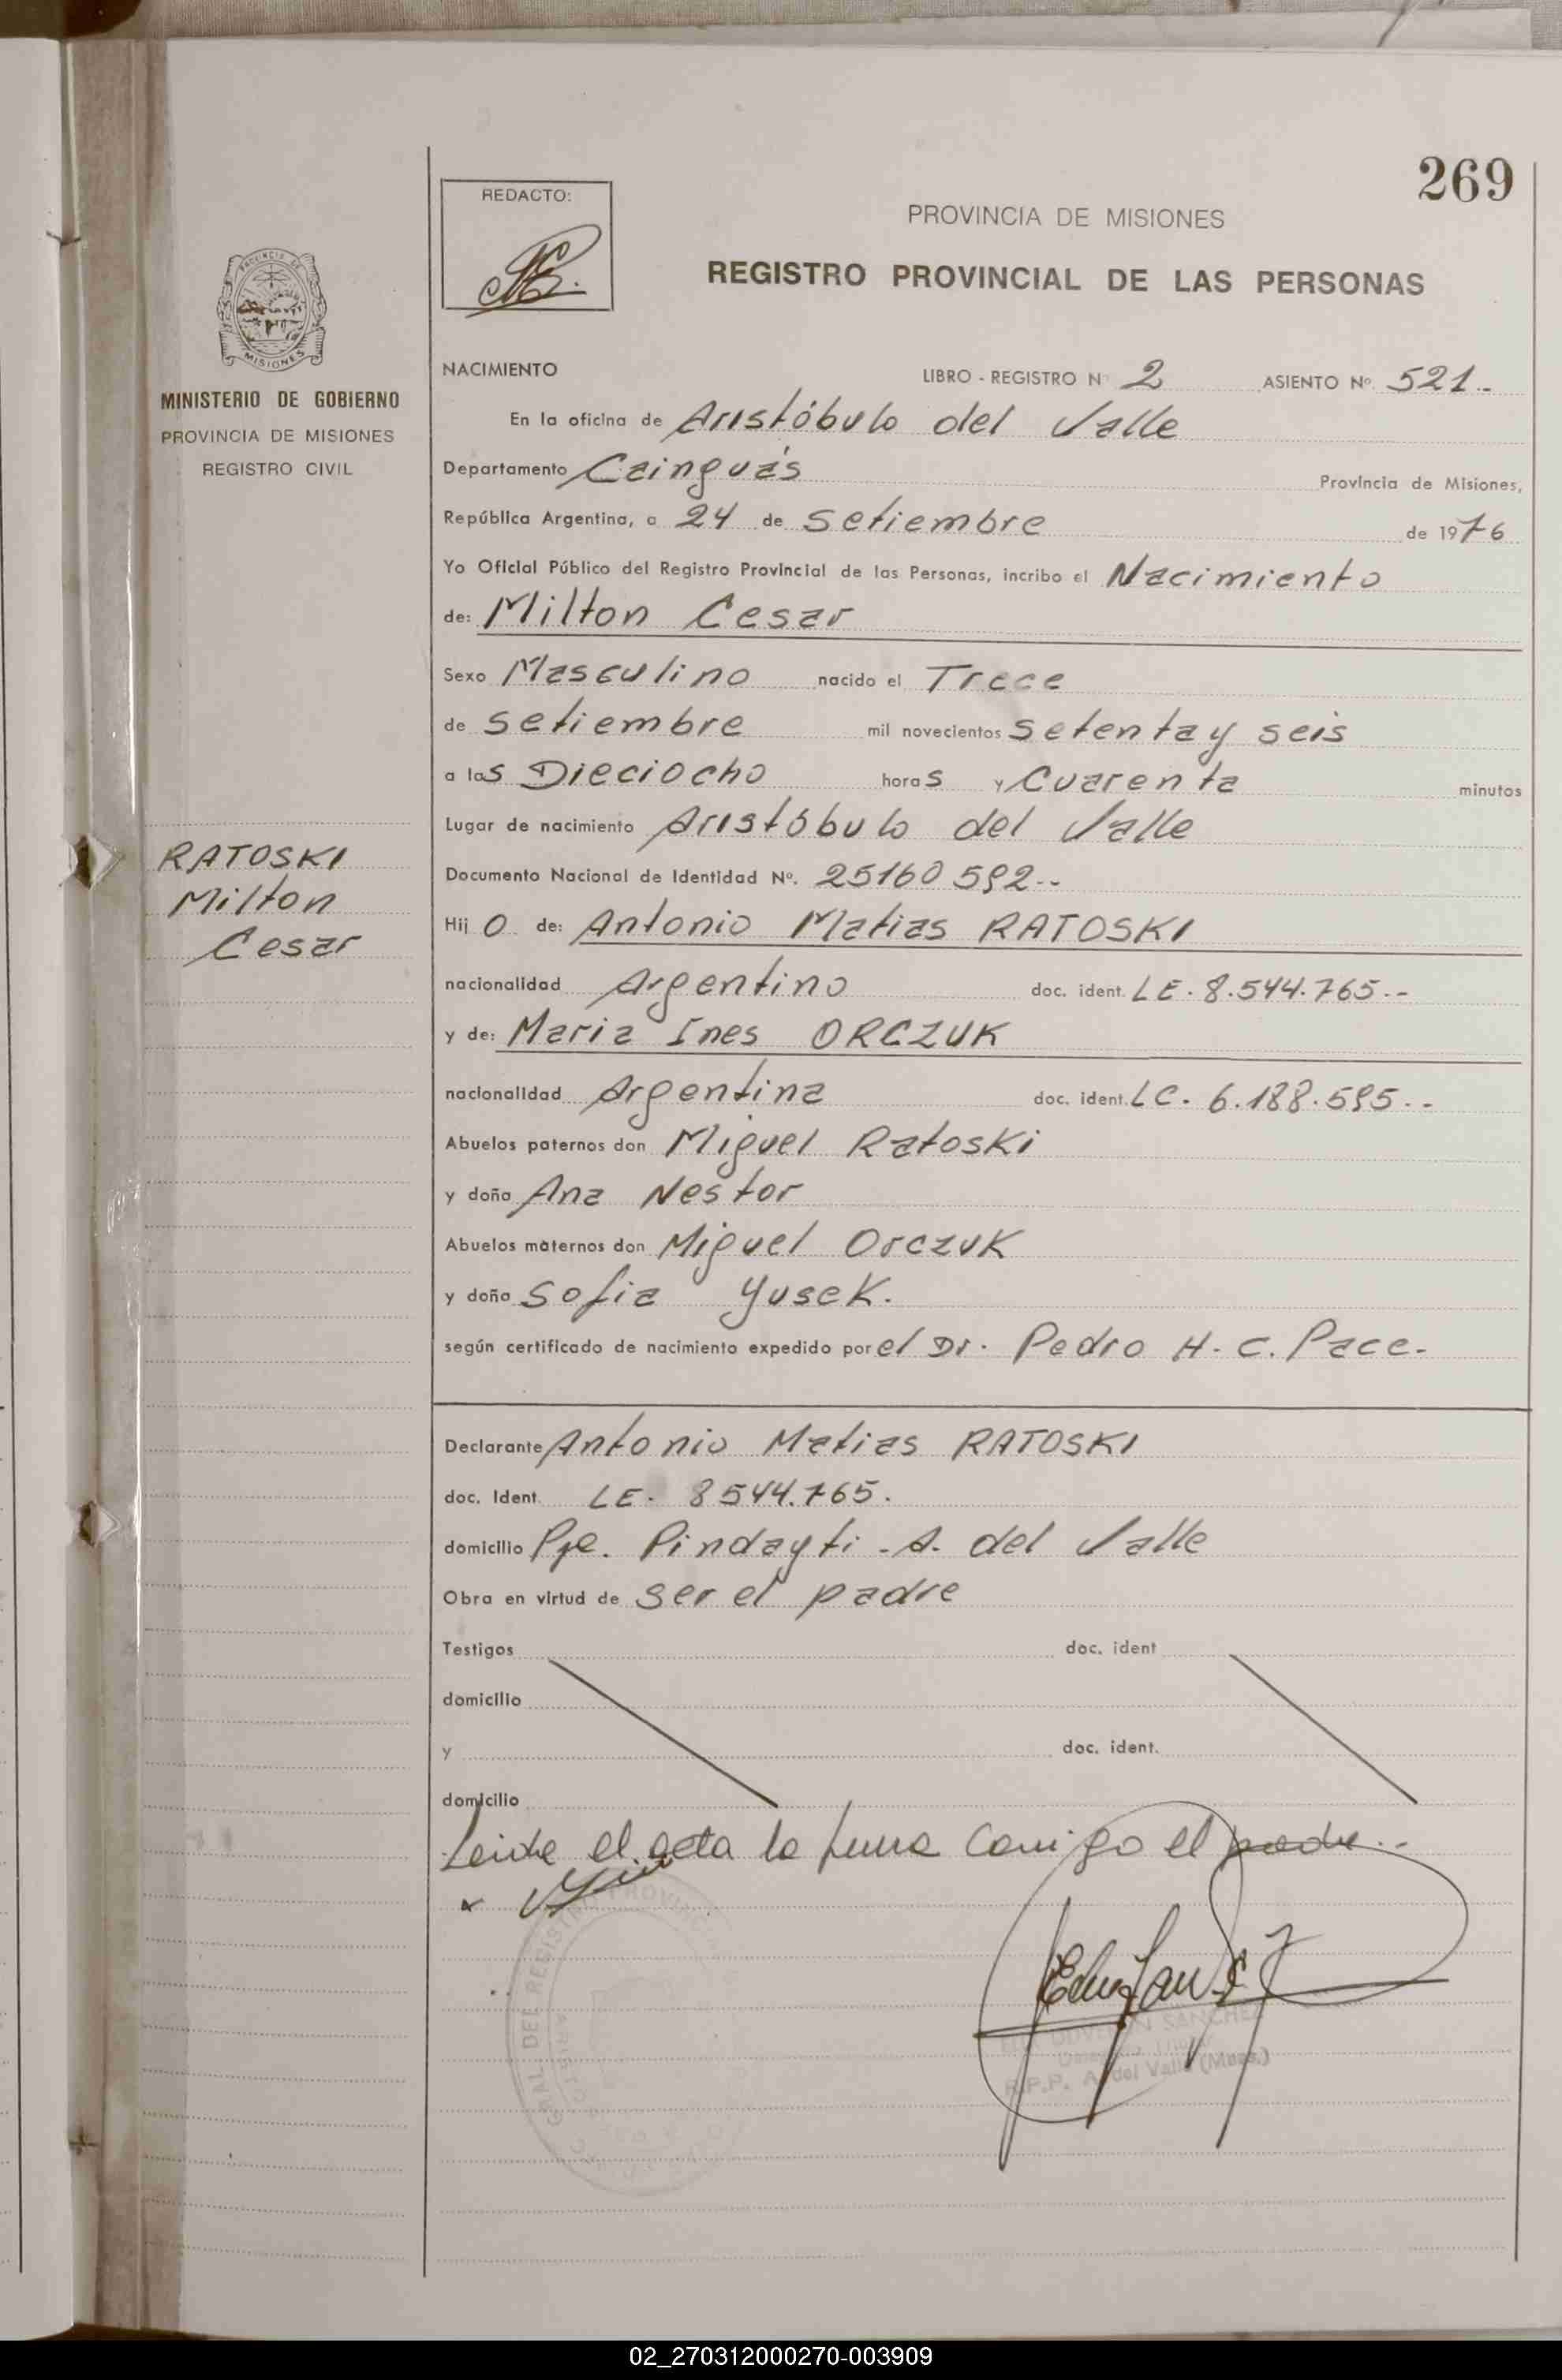 269
REDACTO:
PROVINCIA DE MISIONES
REGISTRO PROVINCIAL DE LAS PERSONAS
MISIONES
MINISTERIO DE GOBIERNO
PROVINCIA DE MISIONES
REGISTRO CIVIL
NACIMIENTO LIBRO - REGISTRO Nº 2 ASIENTO Nº. 521.-
En la oficina de Aristóbulo del Valle
Departamento Cainguás Provincia de Misiones,
República Argentina, a 24 de setiembre de 1976
Yo Oficial Público del Registro Provincial de las Personas, incribo el Nacimiento
de: Milton Cesar
Sexo Masculino nacido el Trece
de setiembre mil novecientos setenta y seis
a las Dieciocho horas y Cuarenta minutos
Lugar de nacimiento Aristóbulo del Valle
RATOSKI
Milton
Cesar
Documento Nacional de Identidad Nº. 25160592.-
Hijo de: Antonio Matias RATOSKI
nacionalidad Argentino doc. ident. LE. 8.544.765.-
y de: Maria Ines ORCZUK
nacionalidad Argentina doc. ident. LC. 6.188.595.-
Abuelos paternos don Miguel Ratoski
y doña Ana Nestor
Abuelos maternos don Miguel Orczuk
y doña Sofia Yusek.
según certificado de nacimiento expedido por el Dr. Pedro H. C. Pace.
Declarante Antonio Matias RATOSKI
doc. Ident. LE. 8544.765.
domicilio Pje. Pindayti - A. del Valle
Obra en virtud de ser el padre
Testigos doc. ident
domicilio
y doc. ident.
domicilio
Leida el acta la firma conmigo el padre.-
SANCHEZ
R.P.P. A. del Valle (Mnes.)
02_270312000270-003909